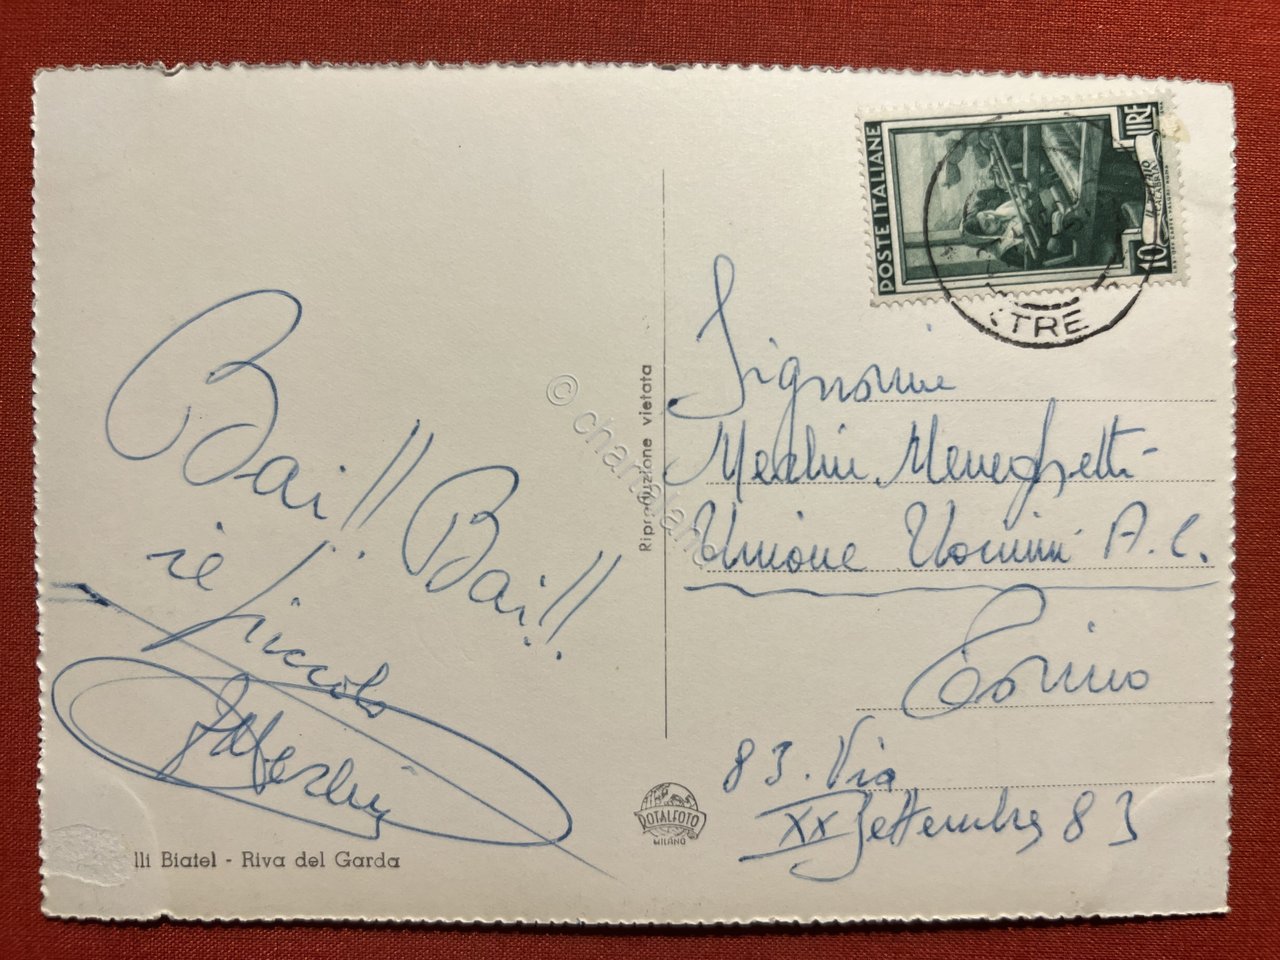 POSTE ITALIANE
10 LIRE
TRE
Bai!! Bai!!
piccolo
Merlin
lli Biatel - Riva del Garda
Riproduzione vietata
© chartaland
DOTALFOTO
MILANO
Signorine
Merlin Meneghetti
Unione Uomini A. C.
Torino
83. Via
XX Settembre 83